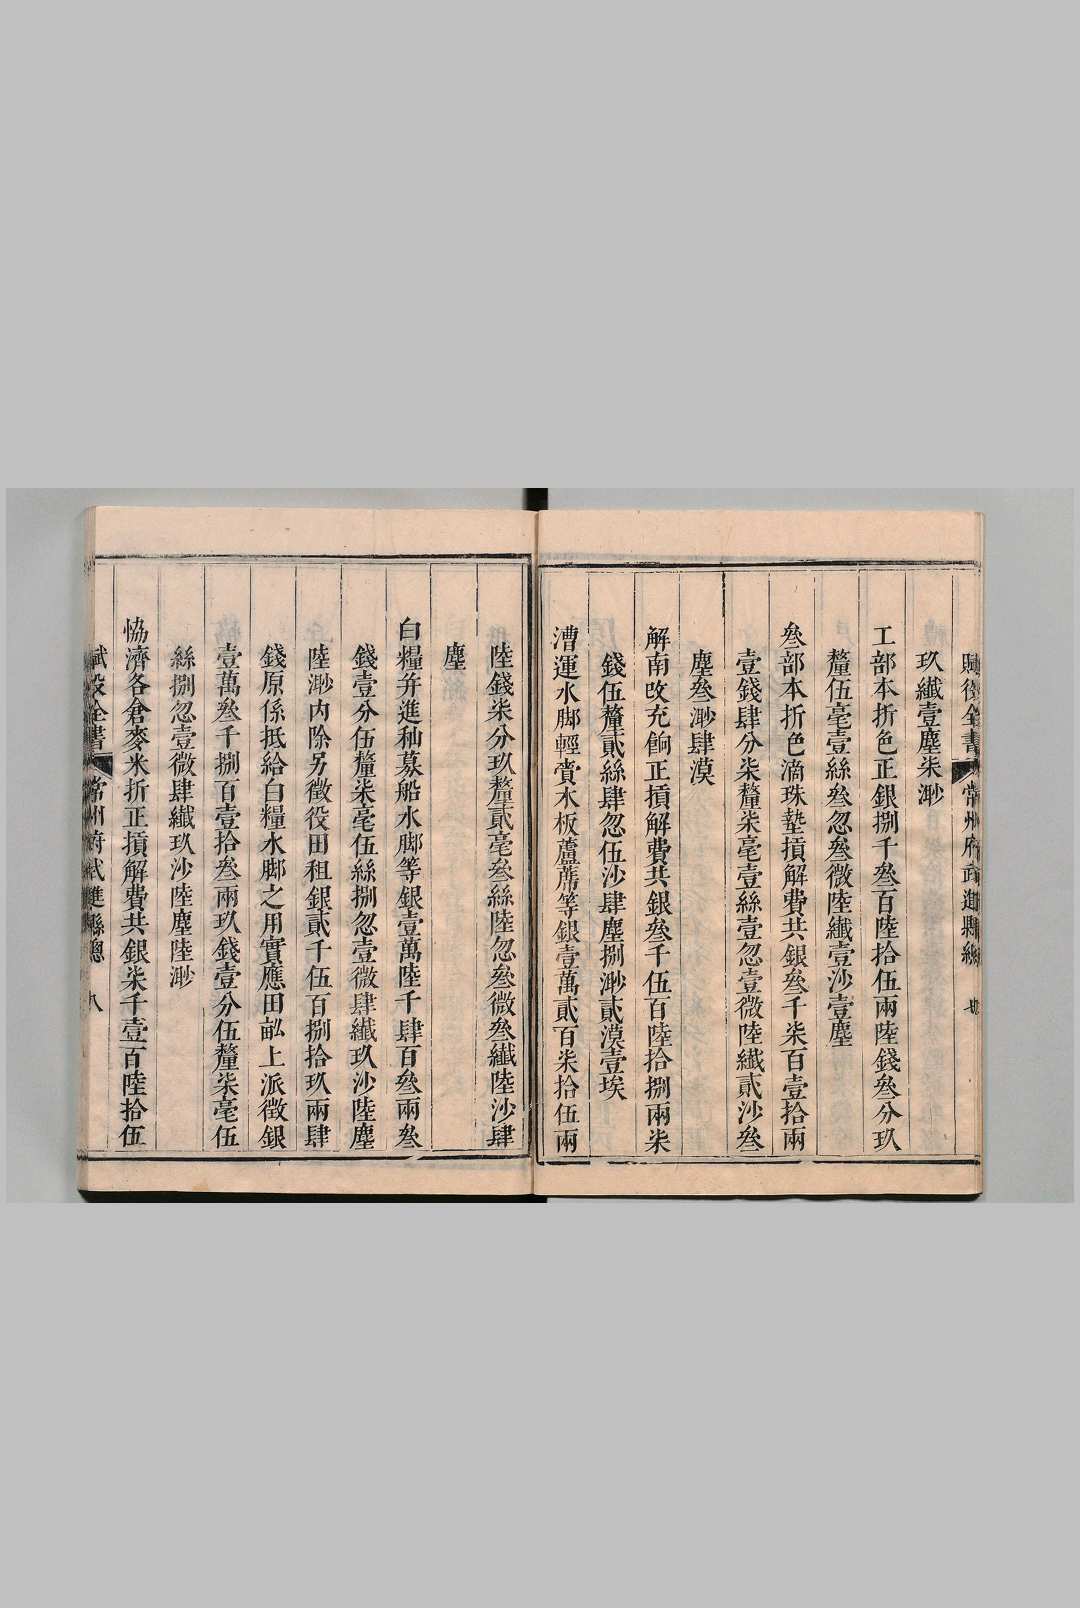 賦役全書 常州府武進縣總
玖纖壹塵柒渺
工部本折色正銀捌千叁百陸拾伍兩陸錢叁分玖
釐伍毫壹絲叁忽叁微陸纖壹沙壹塵
叁部本折色滴珠墊損解費共銀叁千柒百壹拾兩
壹錢肆分柒釐柒毫壹絲壹忽壹微陸纖貳沙叁
塵叁渺肆漠
解南改充餉正損解費共銀叁千伍百陸拾捌兩柒
錢伍釐貳絲肆忽伍沙肆塵捌渺貳漠壹埃
漕運水脚輕賫木板蘆蓆等銀壹萬貳百柒拾伍兩
陸錢柒分玖釐貳毫叁絲陸忽叁微叁纖陸沙肆
塵
白糧并進秈募船水脚等銀壹萬陸千肆百叁兩叁
錢壹分伍釐柒毫伍絲捌忽壹微肆纖玖沙陸塵
陸渺内除另徵役田租銀貳千伍百捌拾玖兩肆
錢原係抵給白糧水脚之用實應田畝上派徵銀
壹萬叁千捌百壹拾叁兩玖錢壹分伍釐柒毫伍
絲捌忽壹微肆纖玖沙陸塵陸渺
恊濟各倉麥米折正損解費共銀柒千壹百陸拾伍
賦役全書 常州府武進縣總 九